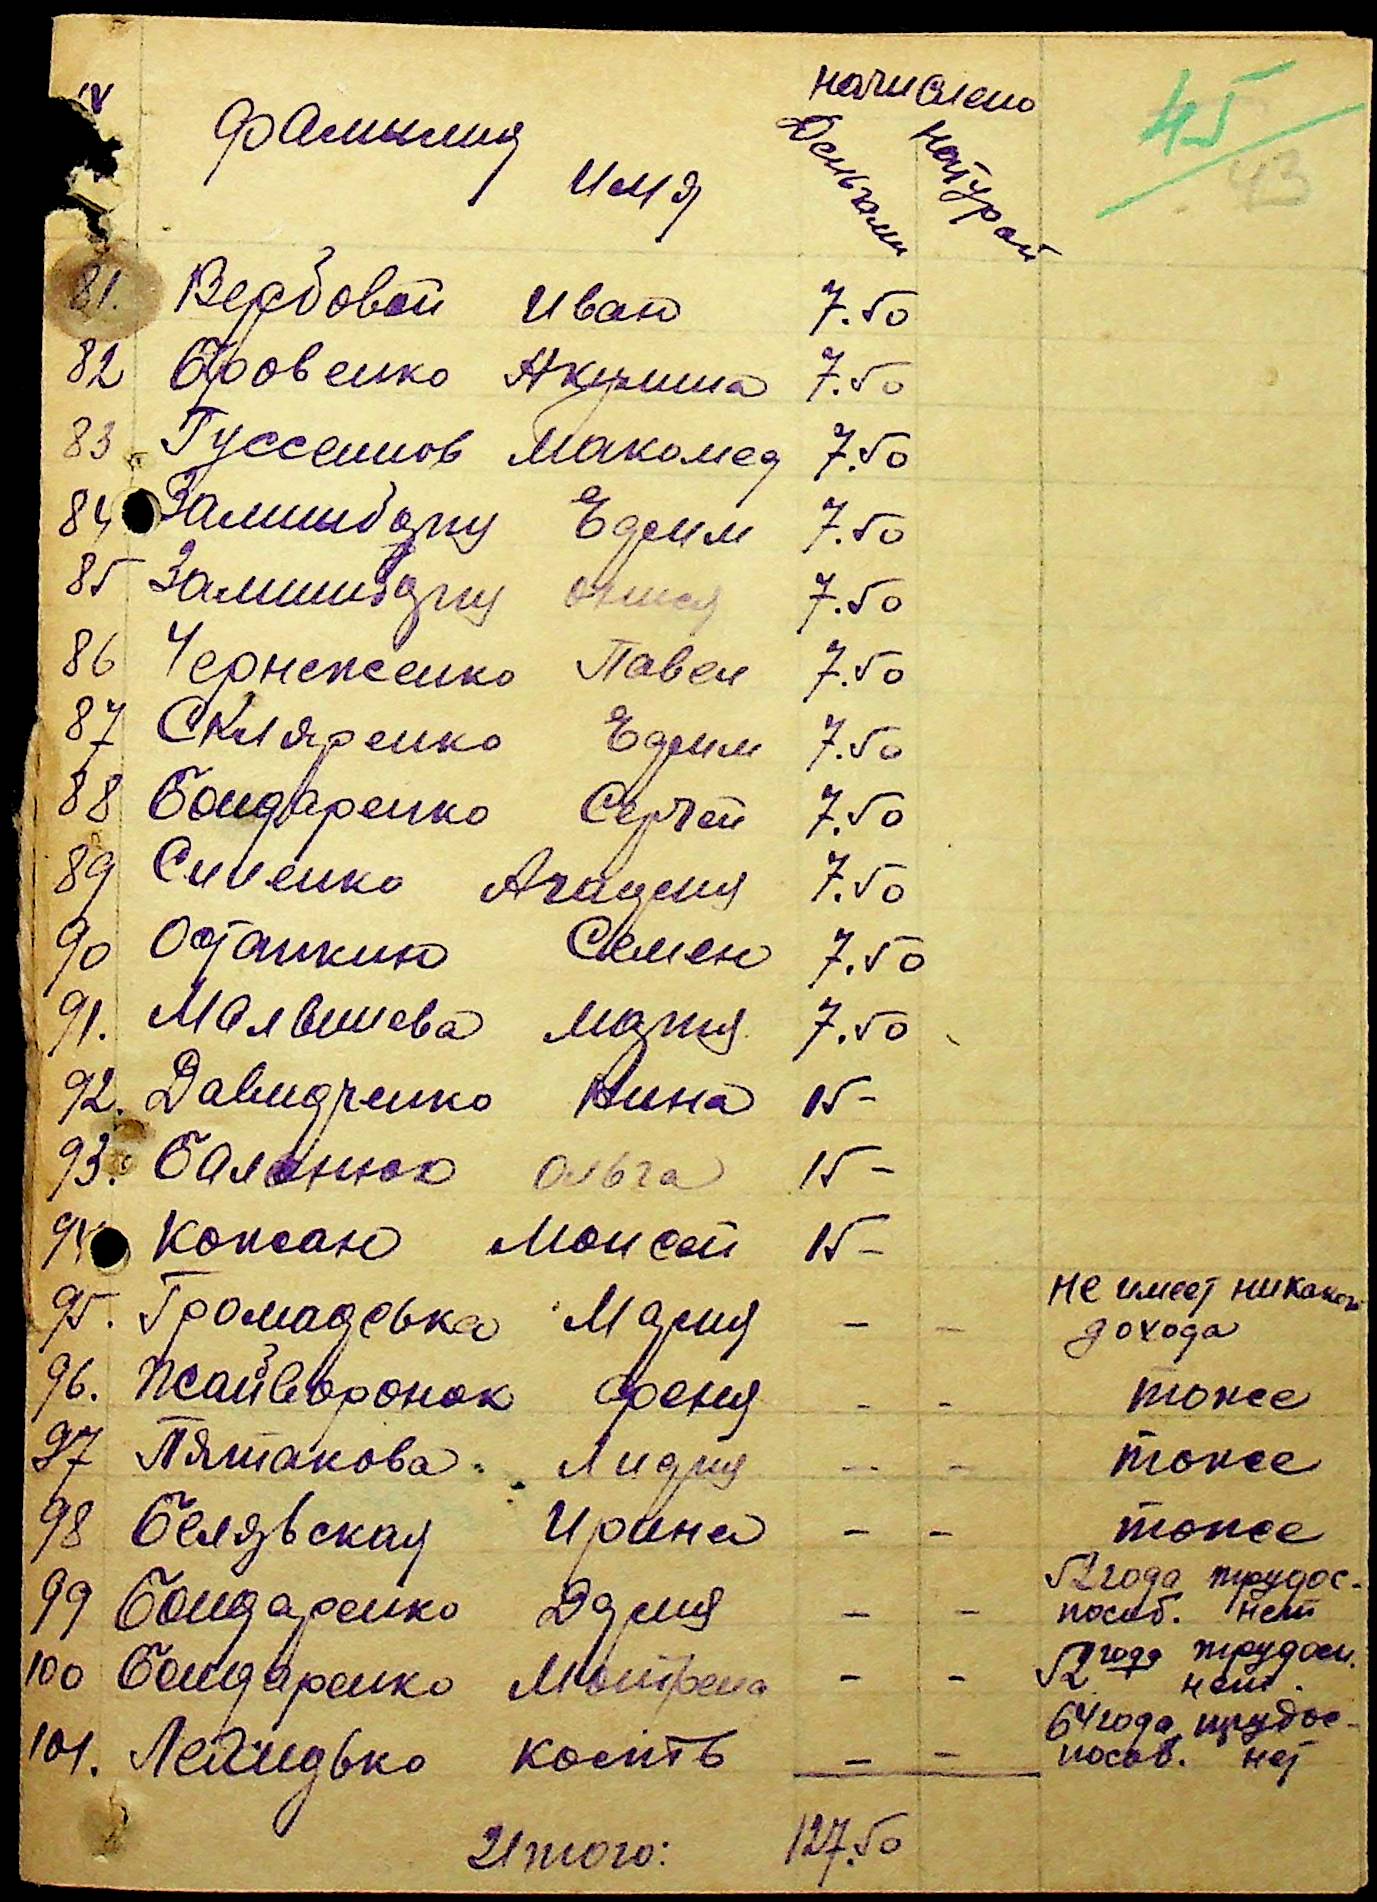 начислено
45
43
Фамылия
Имя
Деньгами
Натурой
81. Вербовой Иван 7.50
82 Бровенко Акулина 7.50
83. Гуссеинов Макомед 7.50
84 Ефрим 7.50
85 7.50
86 Чернеженко Павел 7.50
87 Скляренко Ефрим 7.50
88 Бондаренко Сергей 7.50
89 Синенко Агафия 7.50
90 Остапкин Семен 7.50
91. Малышева Мария 7.50
92. Давидченко Нина 15-
93. Баланюк Ольга 15-
94 Кожан Моисей 15-
не имеет никакого
95. Громадська Мария - -
дохода
96. Жайворонок Феня - - тоже
97 Пятакова Лидия - - тоже
98 Белявская Ирина - - тоже
52 года трудос-
99 Бондаренко Дария - - пособ. нет
100 Бондаренко Мотрена - - 52 года трудосп.
нет.
64 года трудос-
101. Кость - - пособ. нет
Итого: 127.50